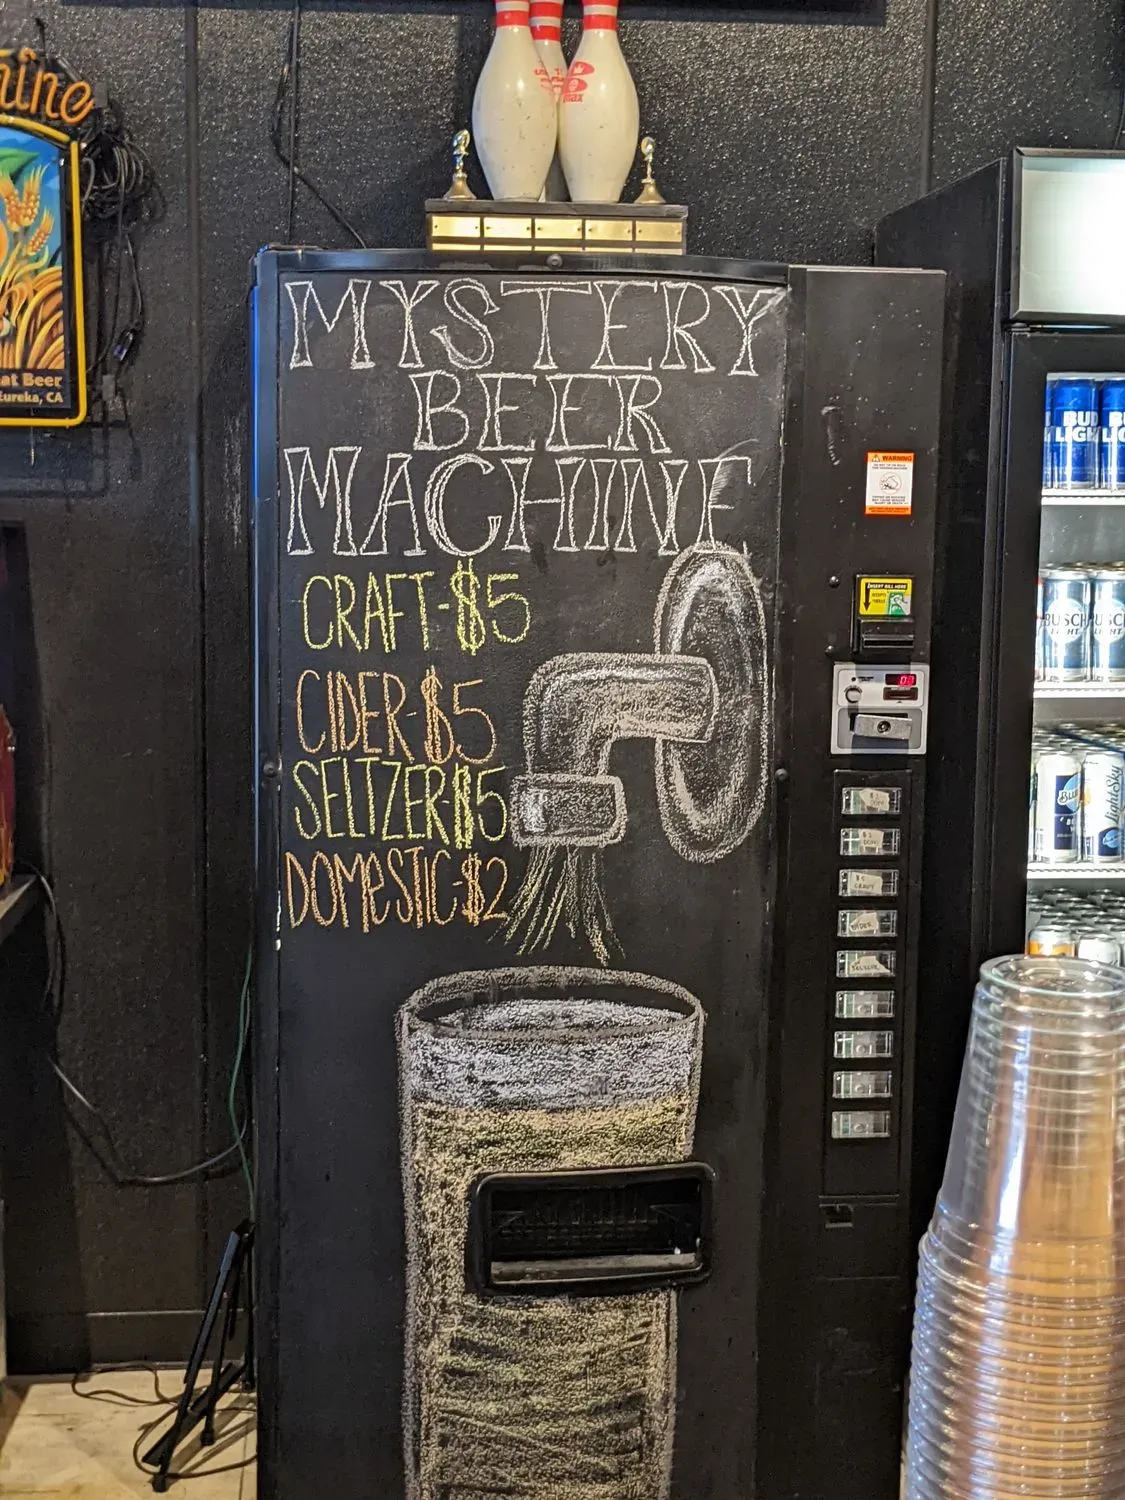 MYSTERY
BEER
MACHINE
CRAFT-$5
CIDER-$5
SELTZER-$5
DOMESTIC-$2
at Beer
Eureka, CA
WARNING
INSERT BILL HERE
$5
CRAFT
CIDER
BUD
LIGHT
BUSCH
LIGHT
LightSky